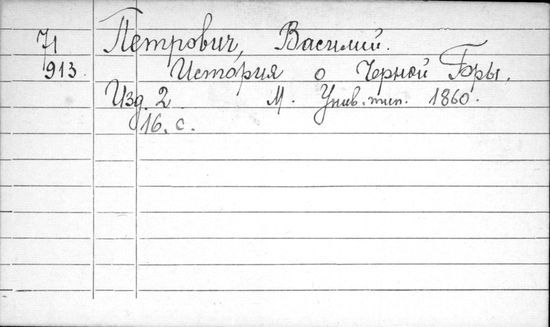 71 Петрович, Василий.
913. История о Черной Горы.
Изд. 2 М. Унив. тип. 1860.
16. с.